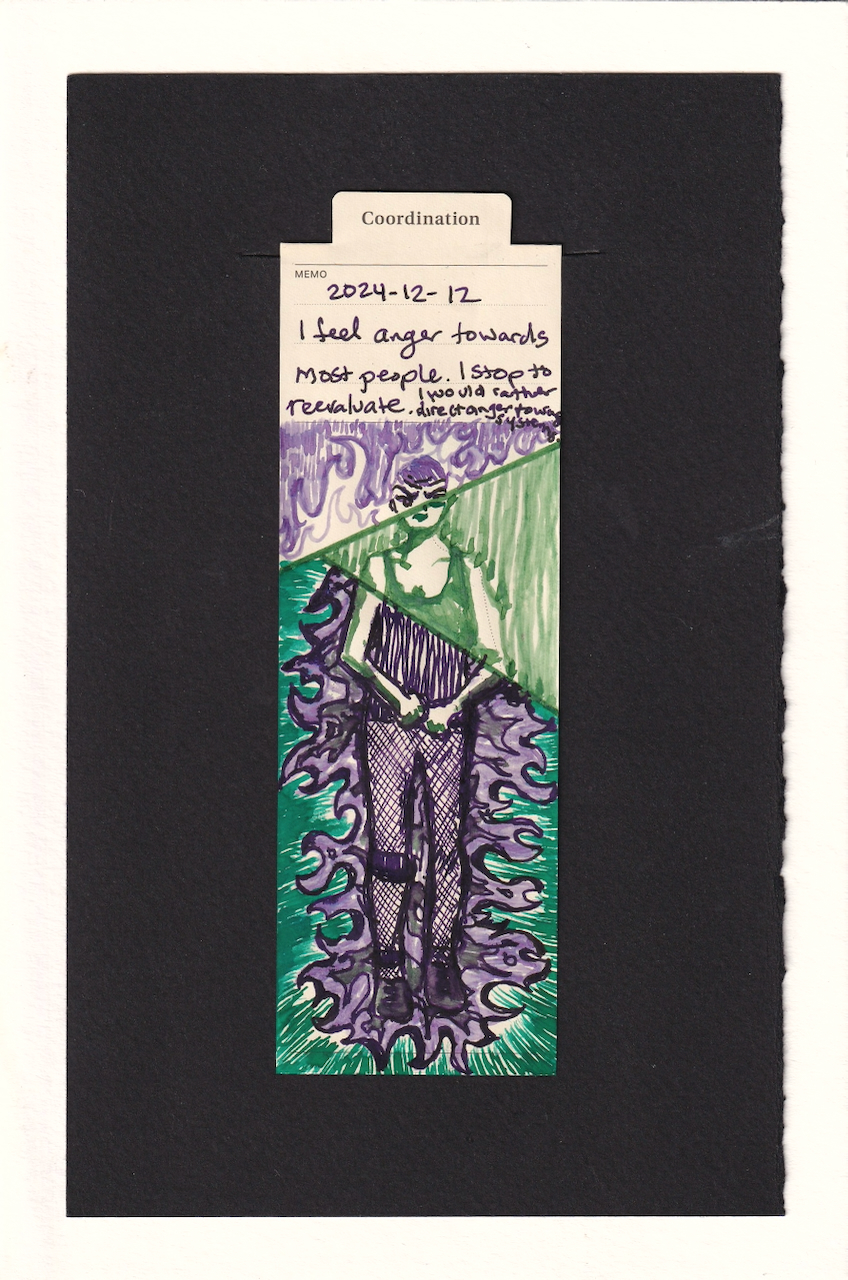 Coordination
MEMO
2024-12-12
I feel anger towards
most people. I stop to
reevaluate. I would rather
direct anger toward
systems.